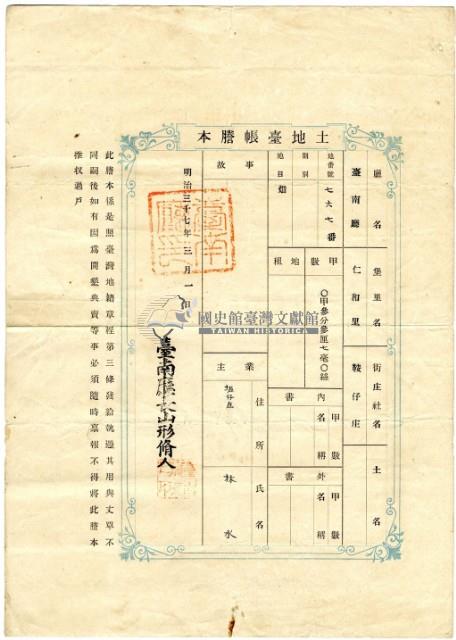 土地臺帳謄本
廳名
臺南廳
堡里名
仁和里
街庄社名
鞍仔庄
土名
地番號
七六七番
則別
地目
畑
甲數
〇甲參分參厘七毫〇絲
地租
內書
名稱
甲數
外書
名稱
甲數
事故
業主
住所
氏名
林水
明治三十七年三月一日
臺南廳長山形脩人
臺南廳印
此謄本係是照臺灣地籍章程第三條發給執過其用與丈單不
同嗣後如有因爲開墾典賣等事必須隨時稟報不得將此謄本
推收過戶
國史館臺灣文獻館
TAIWAN HISTORICA